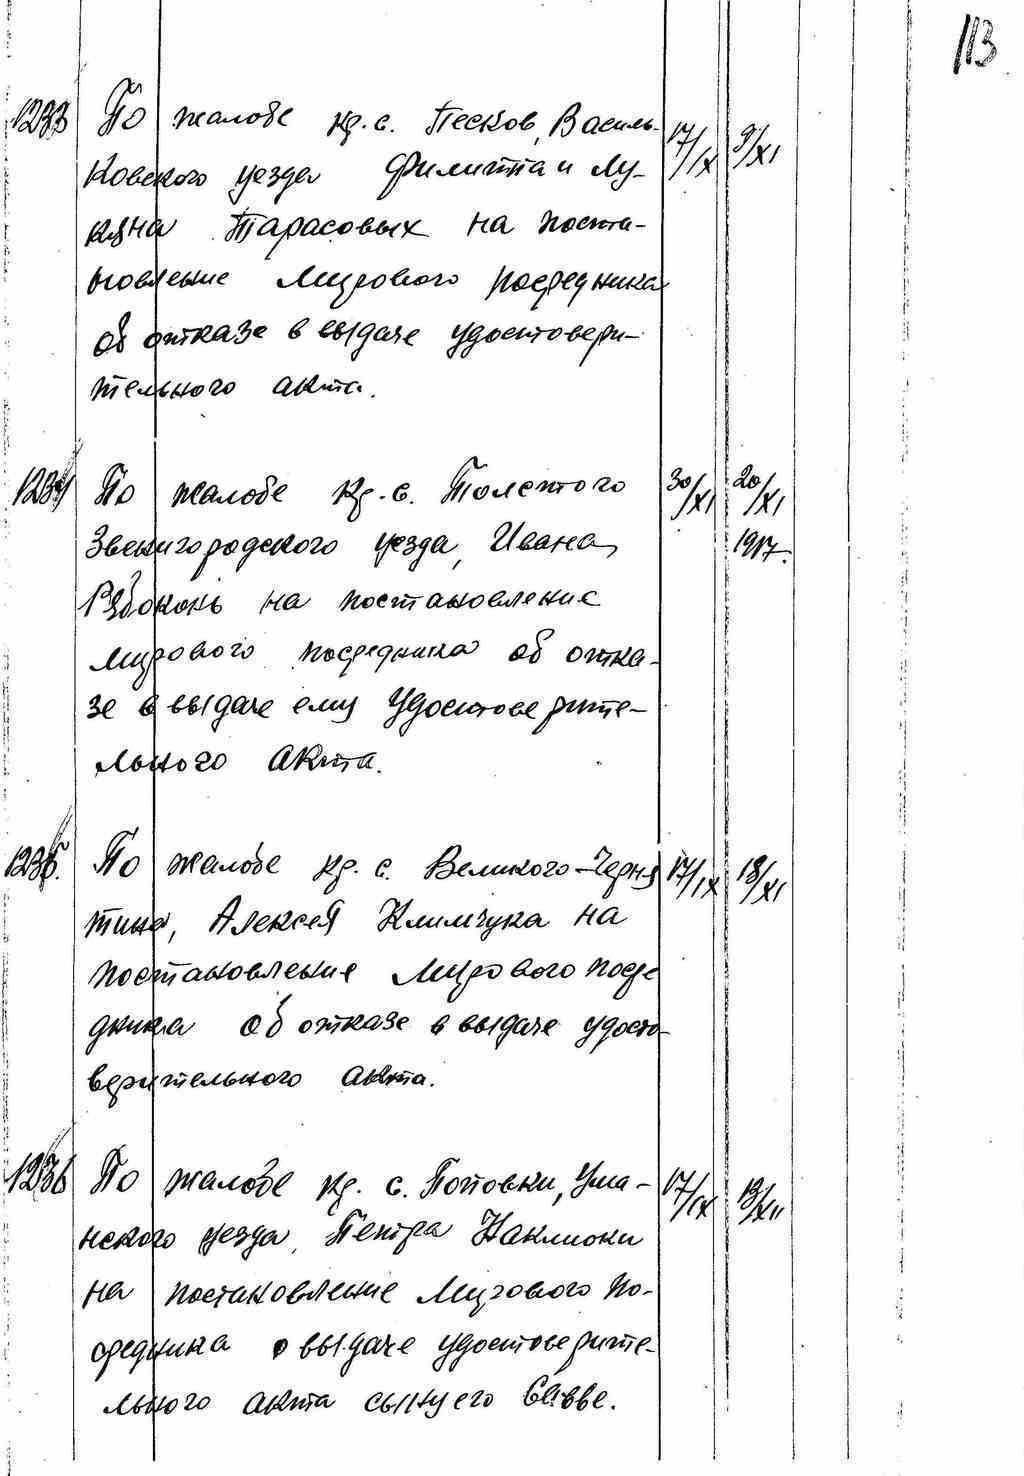 113
1233 По жалобе кр. с. Песков, Василь- 17/IX 9/XI
ковского уезда Филиппа и Лу-
кяна Тарасовых на поста-
новление Мирового посредника
об отказе в выдаче удостовери-
тельного акта.
1234 По жалобе кр. с. Толстого 30/XI 20/XI
Звенигородского уезда, Ивана 1917.
Рябоконь на постановление
мирового посредника об отка-
зе в выдаче ему удостоверите-
льного акта.
1235. По жалобе кр. с. Великого-Черня 17/IX 18/XI
тина, Алексея Климчука на
постановление Мирового посре
дника об отказе в выдаче удосто-
верительного акта.
1236 По жалобе кр. с. Поповки, Ума- 17/IX 13/XII
нского уезда, Петра Наклюки
на постановление Мирового по-
средника о выдаче удостоверите-
льного акта сыну его Савве.